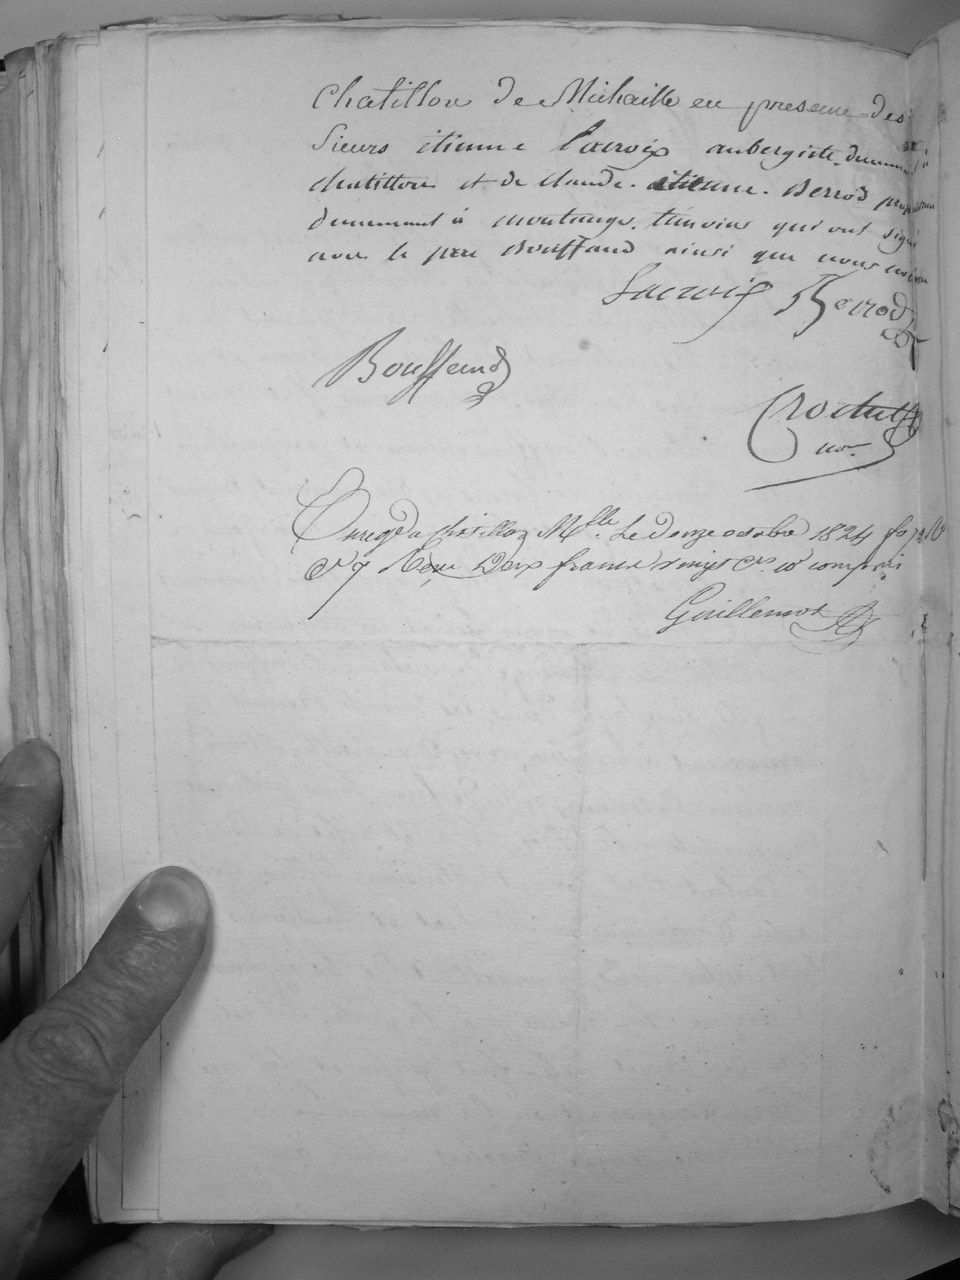 Chatillon de Michaille en presence des
Sieurs etienne Lacroix aubergiste demeurant à
chatillon et de claude. etienne. Berrod propriétaire
demeurant à montange, témoins qui ont signé
avec le père Bouffand ainsi que nous notaire
Lacroix Berrod
Bouffand
Crochet
nore
Enregé a chatillon Mlle. Le Douze octobre 1824 fo
Ce 7 Reçu Deux francs vingt Cs 10e compris
Guillemot